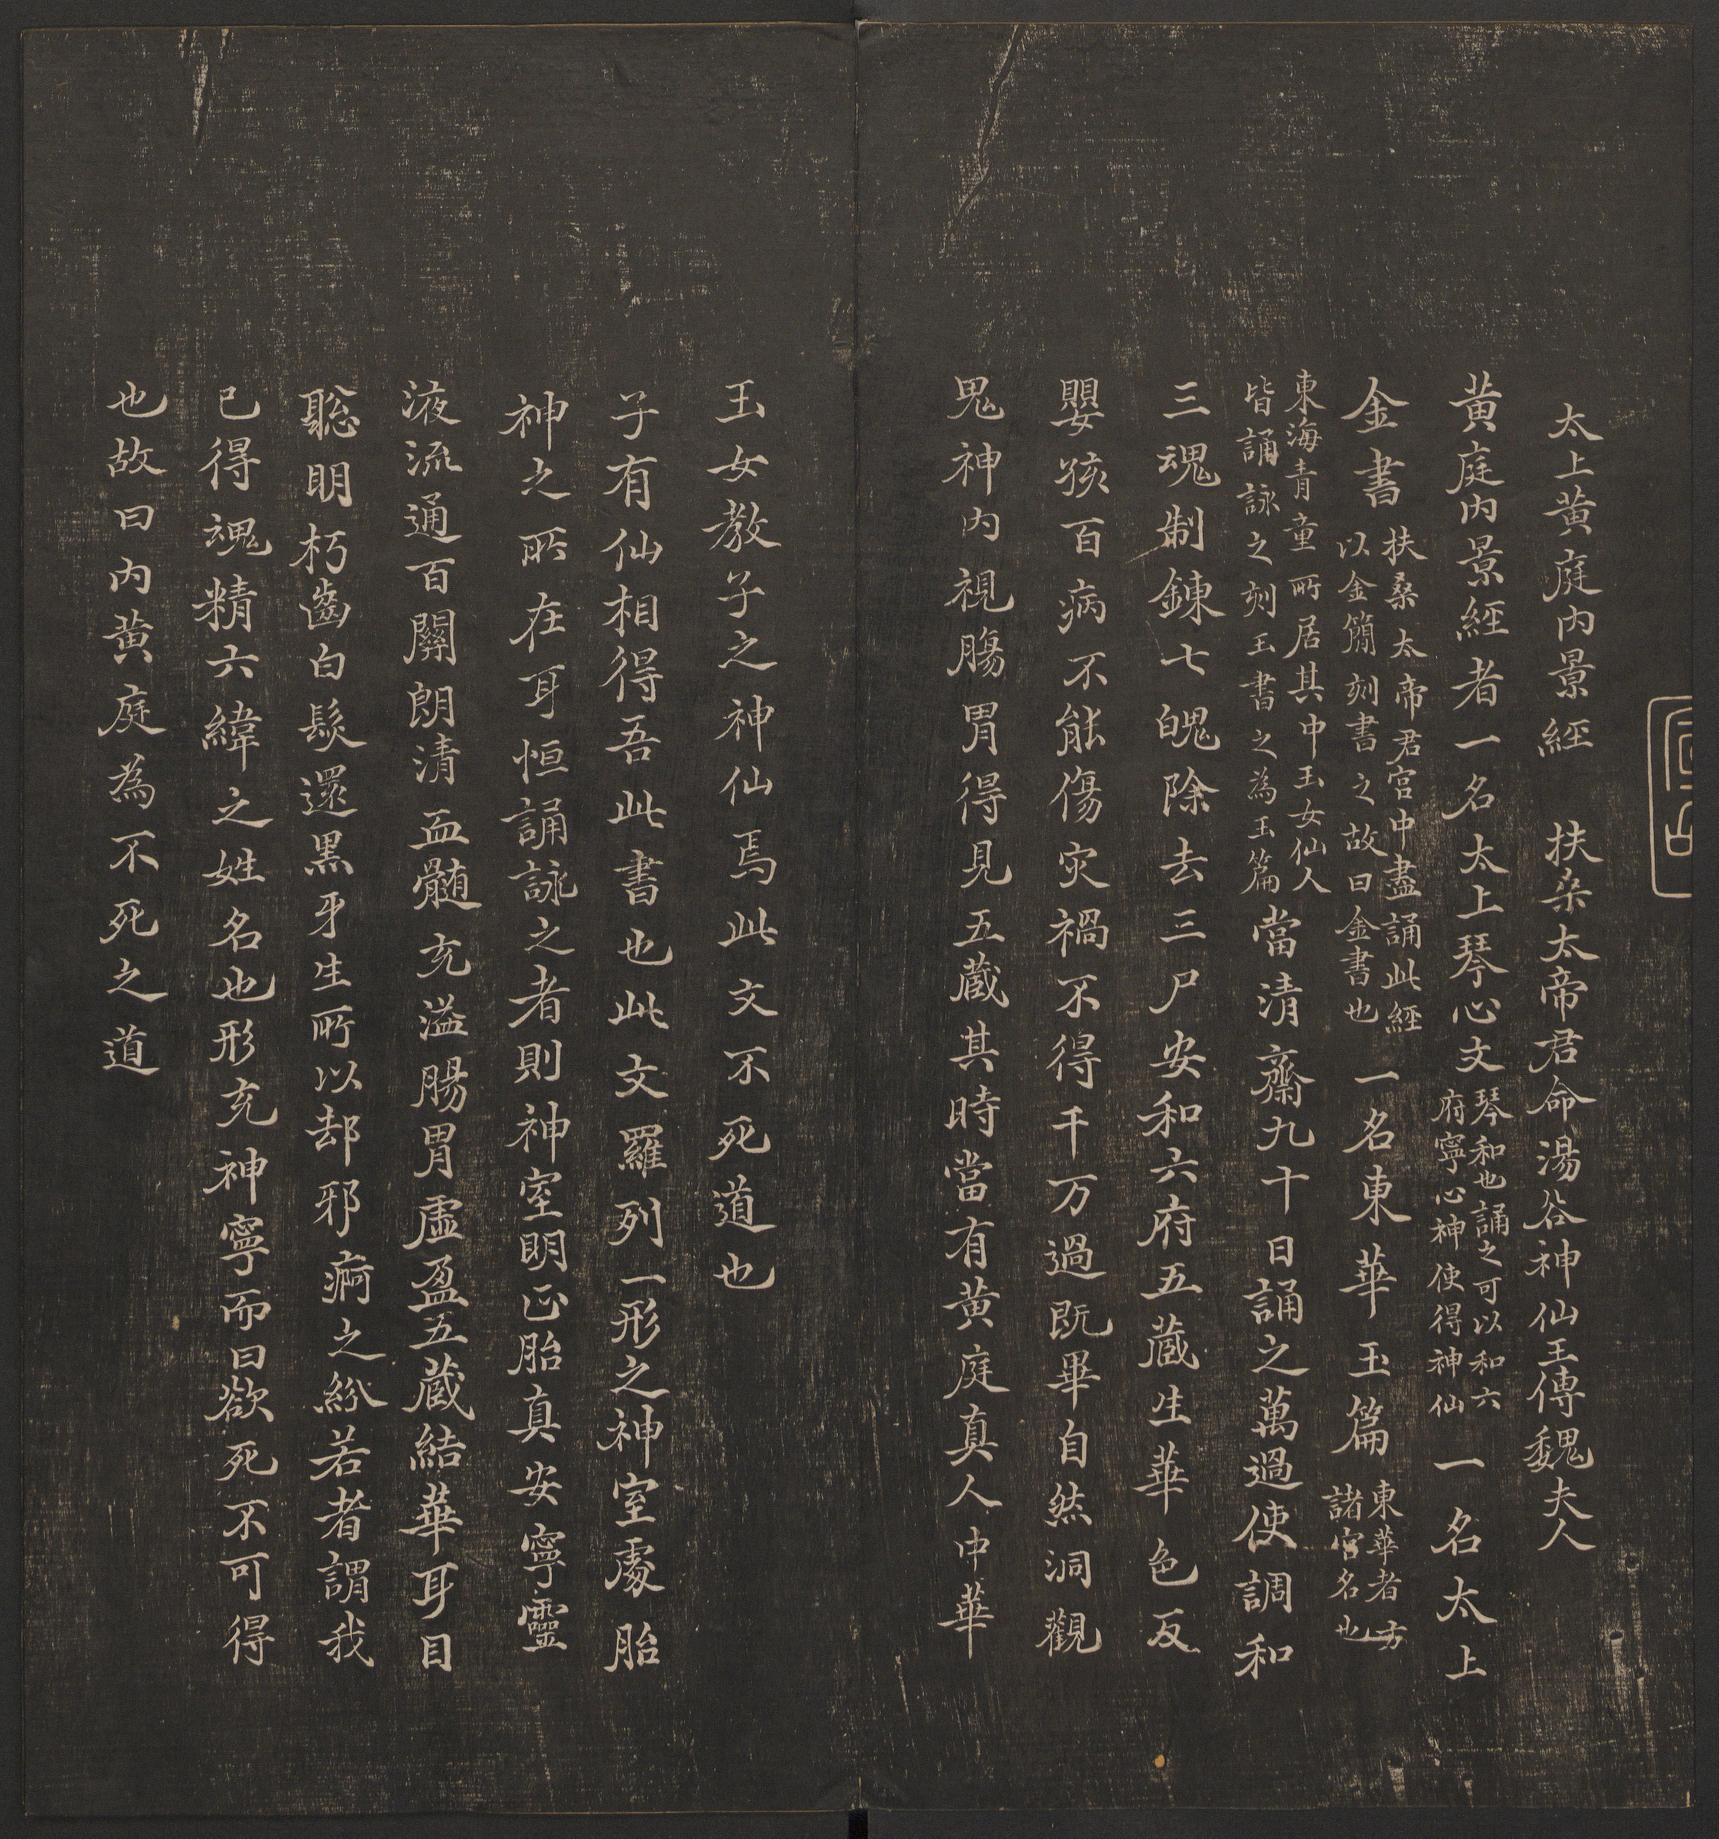 太上黄庭内景經　扶桒太帝君命湯谷神仙王傳魏夫人
黄庭内景經者一名太上琴心文琴和也誦之可以和六府寧心神使得神仙一名太上
金書扶桑太帝君宫中盡誦此經以金簡刻書之故曰金書也一名東華玉篇東華者方諸宫名也
東海青童所居其中玉女仙人皆誦詠之刻玉書之為玉篇當清齋九十日誦之萬過使調和
三魂制鍊七魄除去三尸安和六府五藏生華色反
嬰孩百病不能傷灾禍不得千万過既畢自然洞觀
鬼神内視腸胃得見五藏其時當有黄庭真人中華
玉女教子之神仙焉此文不死道也
子有仙相得吾此書也此文羅列一形之神室處胎
神之所在耳恒誦詠之者則神室明正胎真安寧靈
液流通百關朗清血髓充溢腸胃虛盈五藏結華耳目
聡明朽齒白髮還黑牙生所以却邪痾之紛若者謂我
已得魂精六緯之姓名也形充神寧而曰欲死不可得
也故曰内黄庭為不死之道